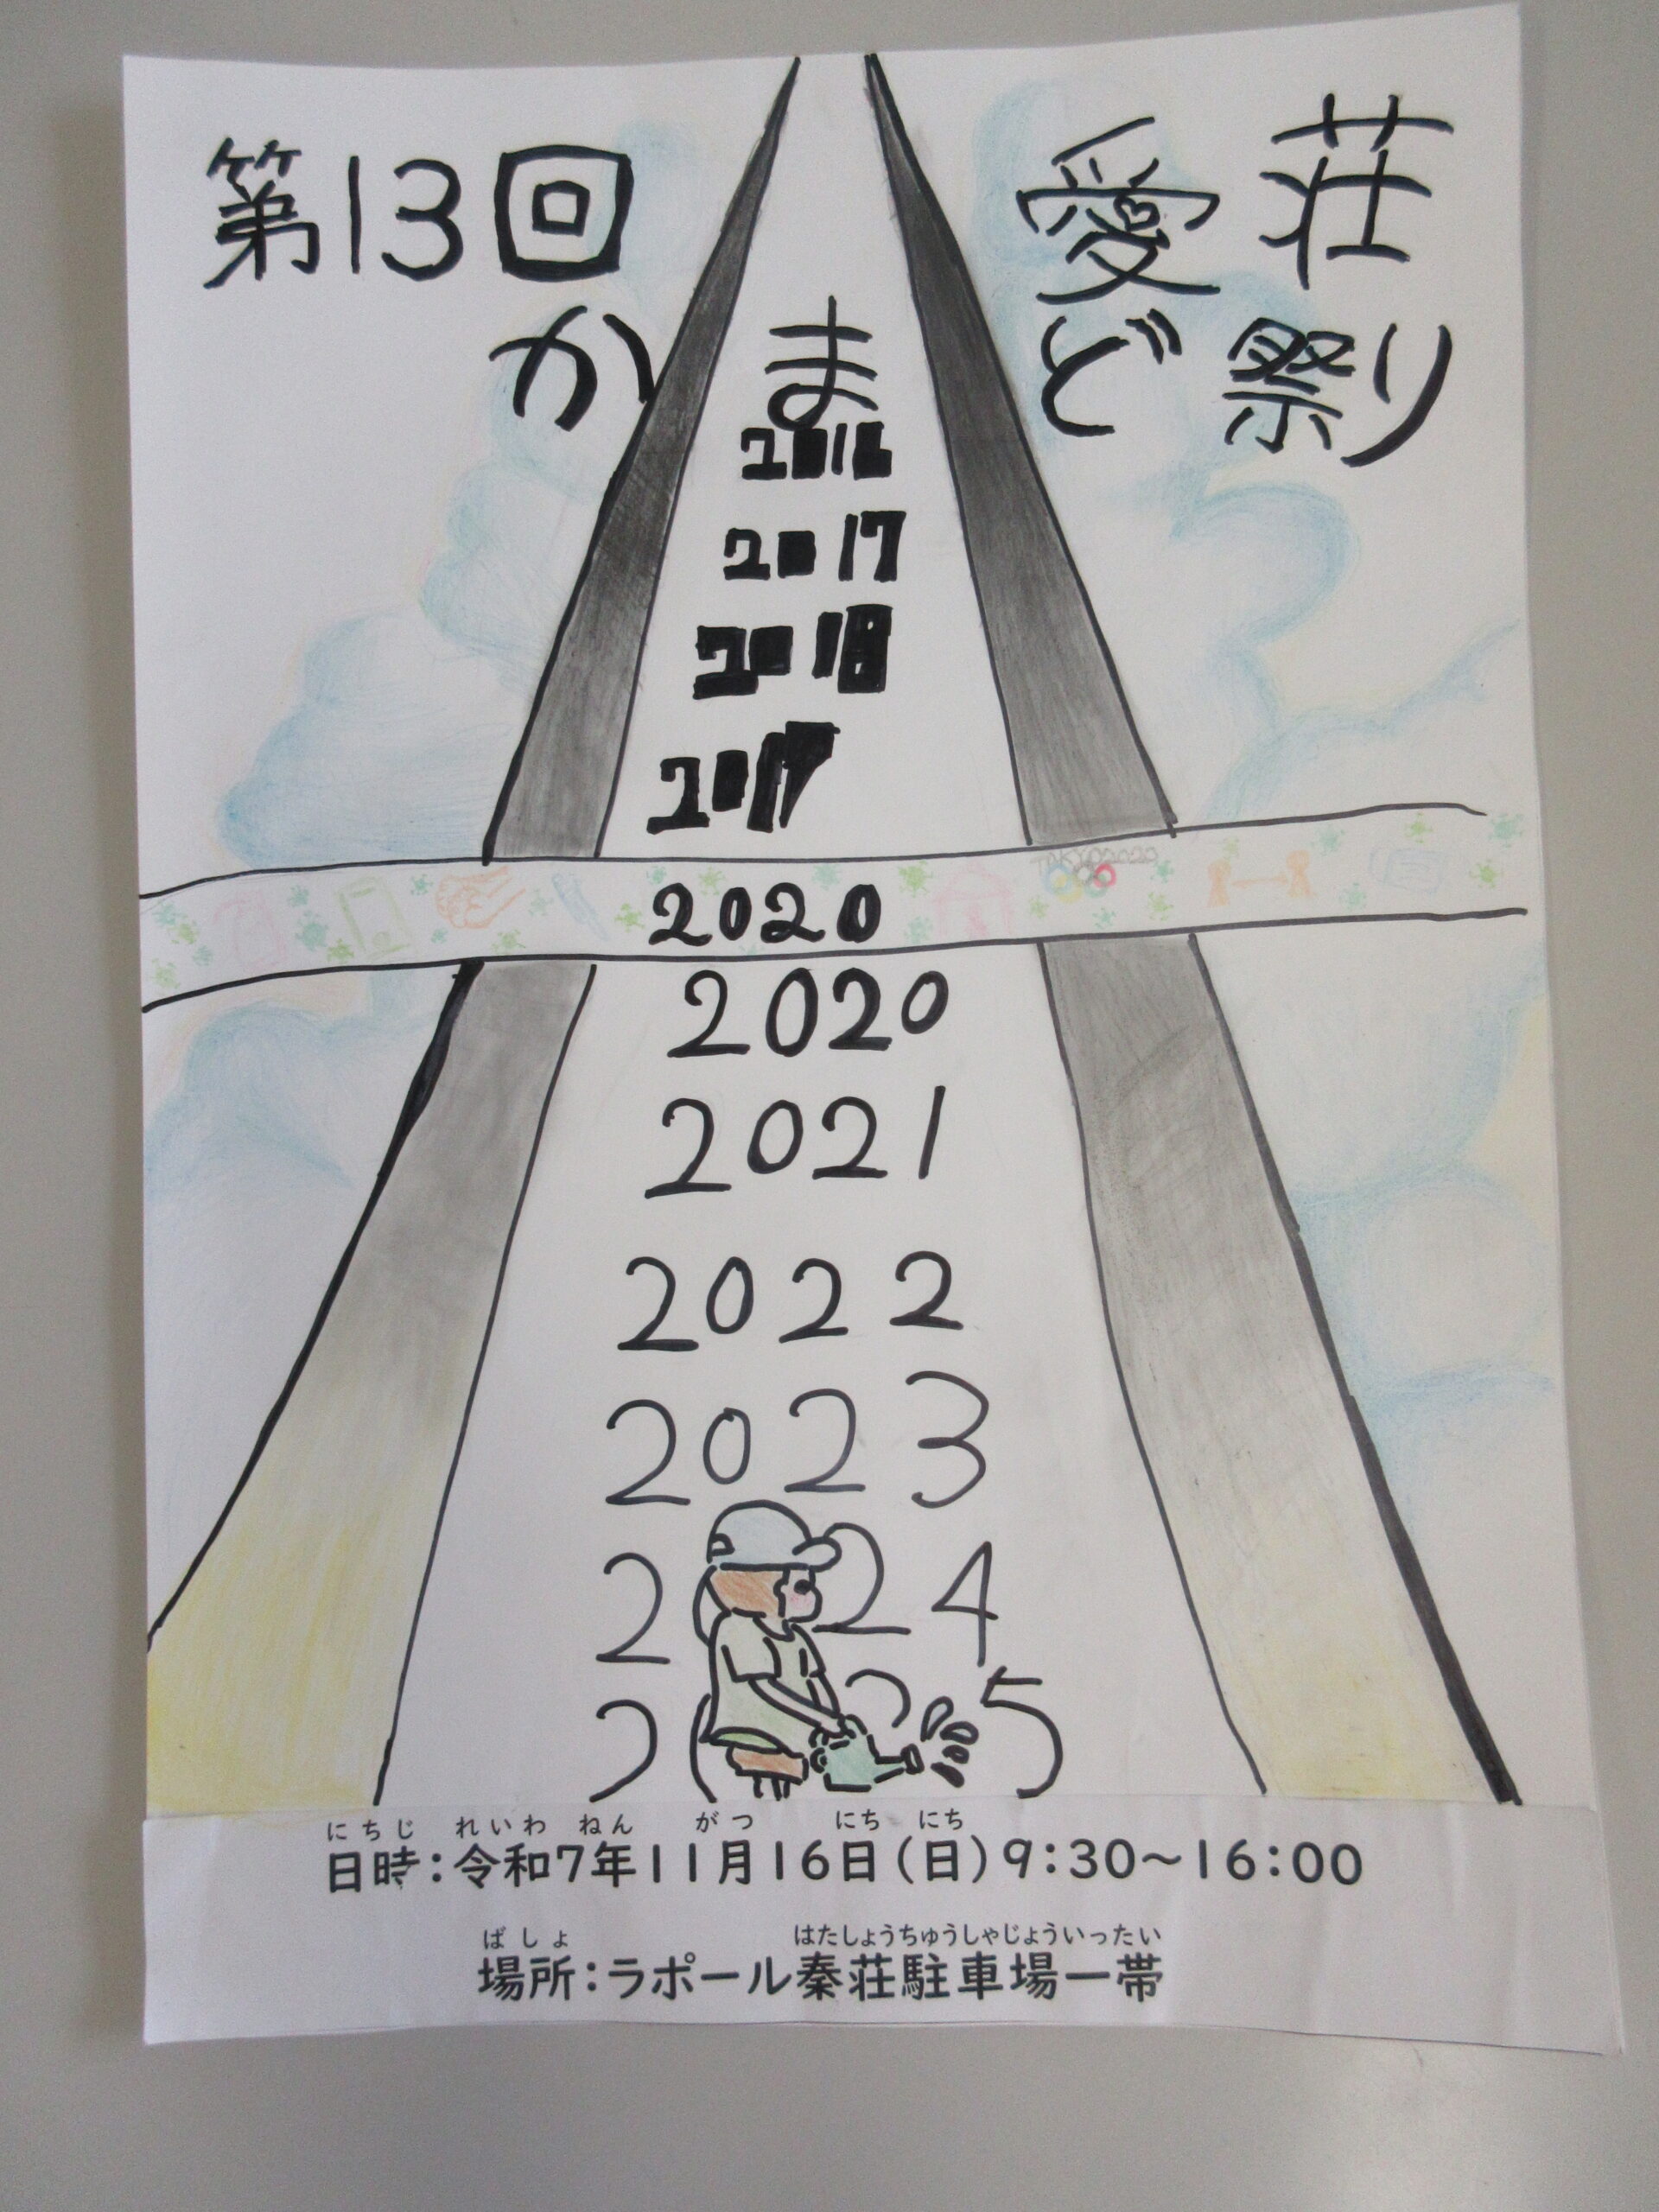 第13回
愛荘
かまど祭り
2016
2017
2018
201
TOKYO2020
2020
2020
2021
2022
2023
2 24
2 2 5
にちじ れいわ ねん がつ にち にち
日時：令和7年11月16日（日）9：30～16：00
ばしょ はたしょうちゅうしゃじょういったい
場所：ラポール秦荘駐車場一帯